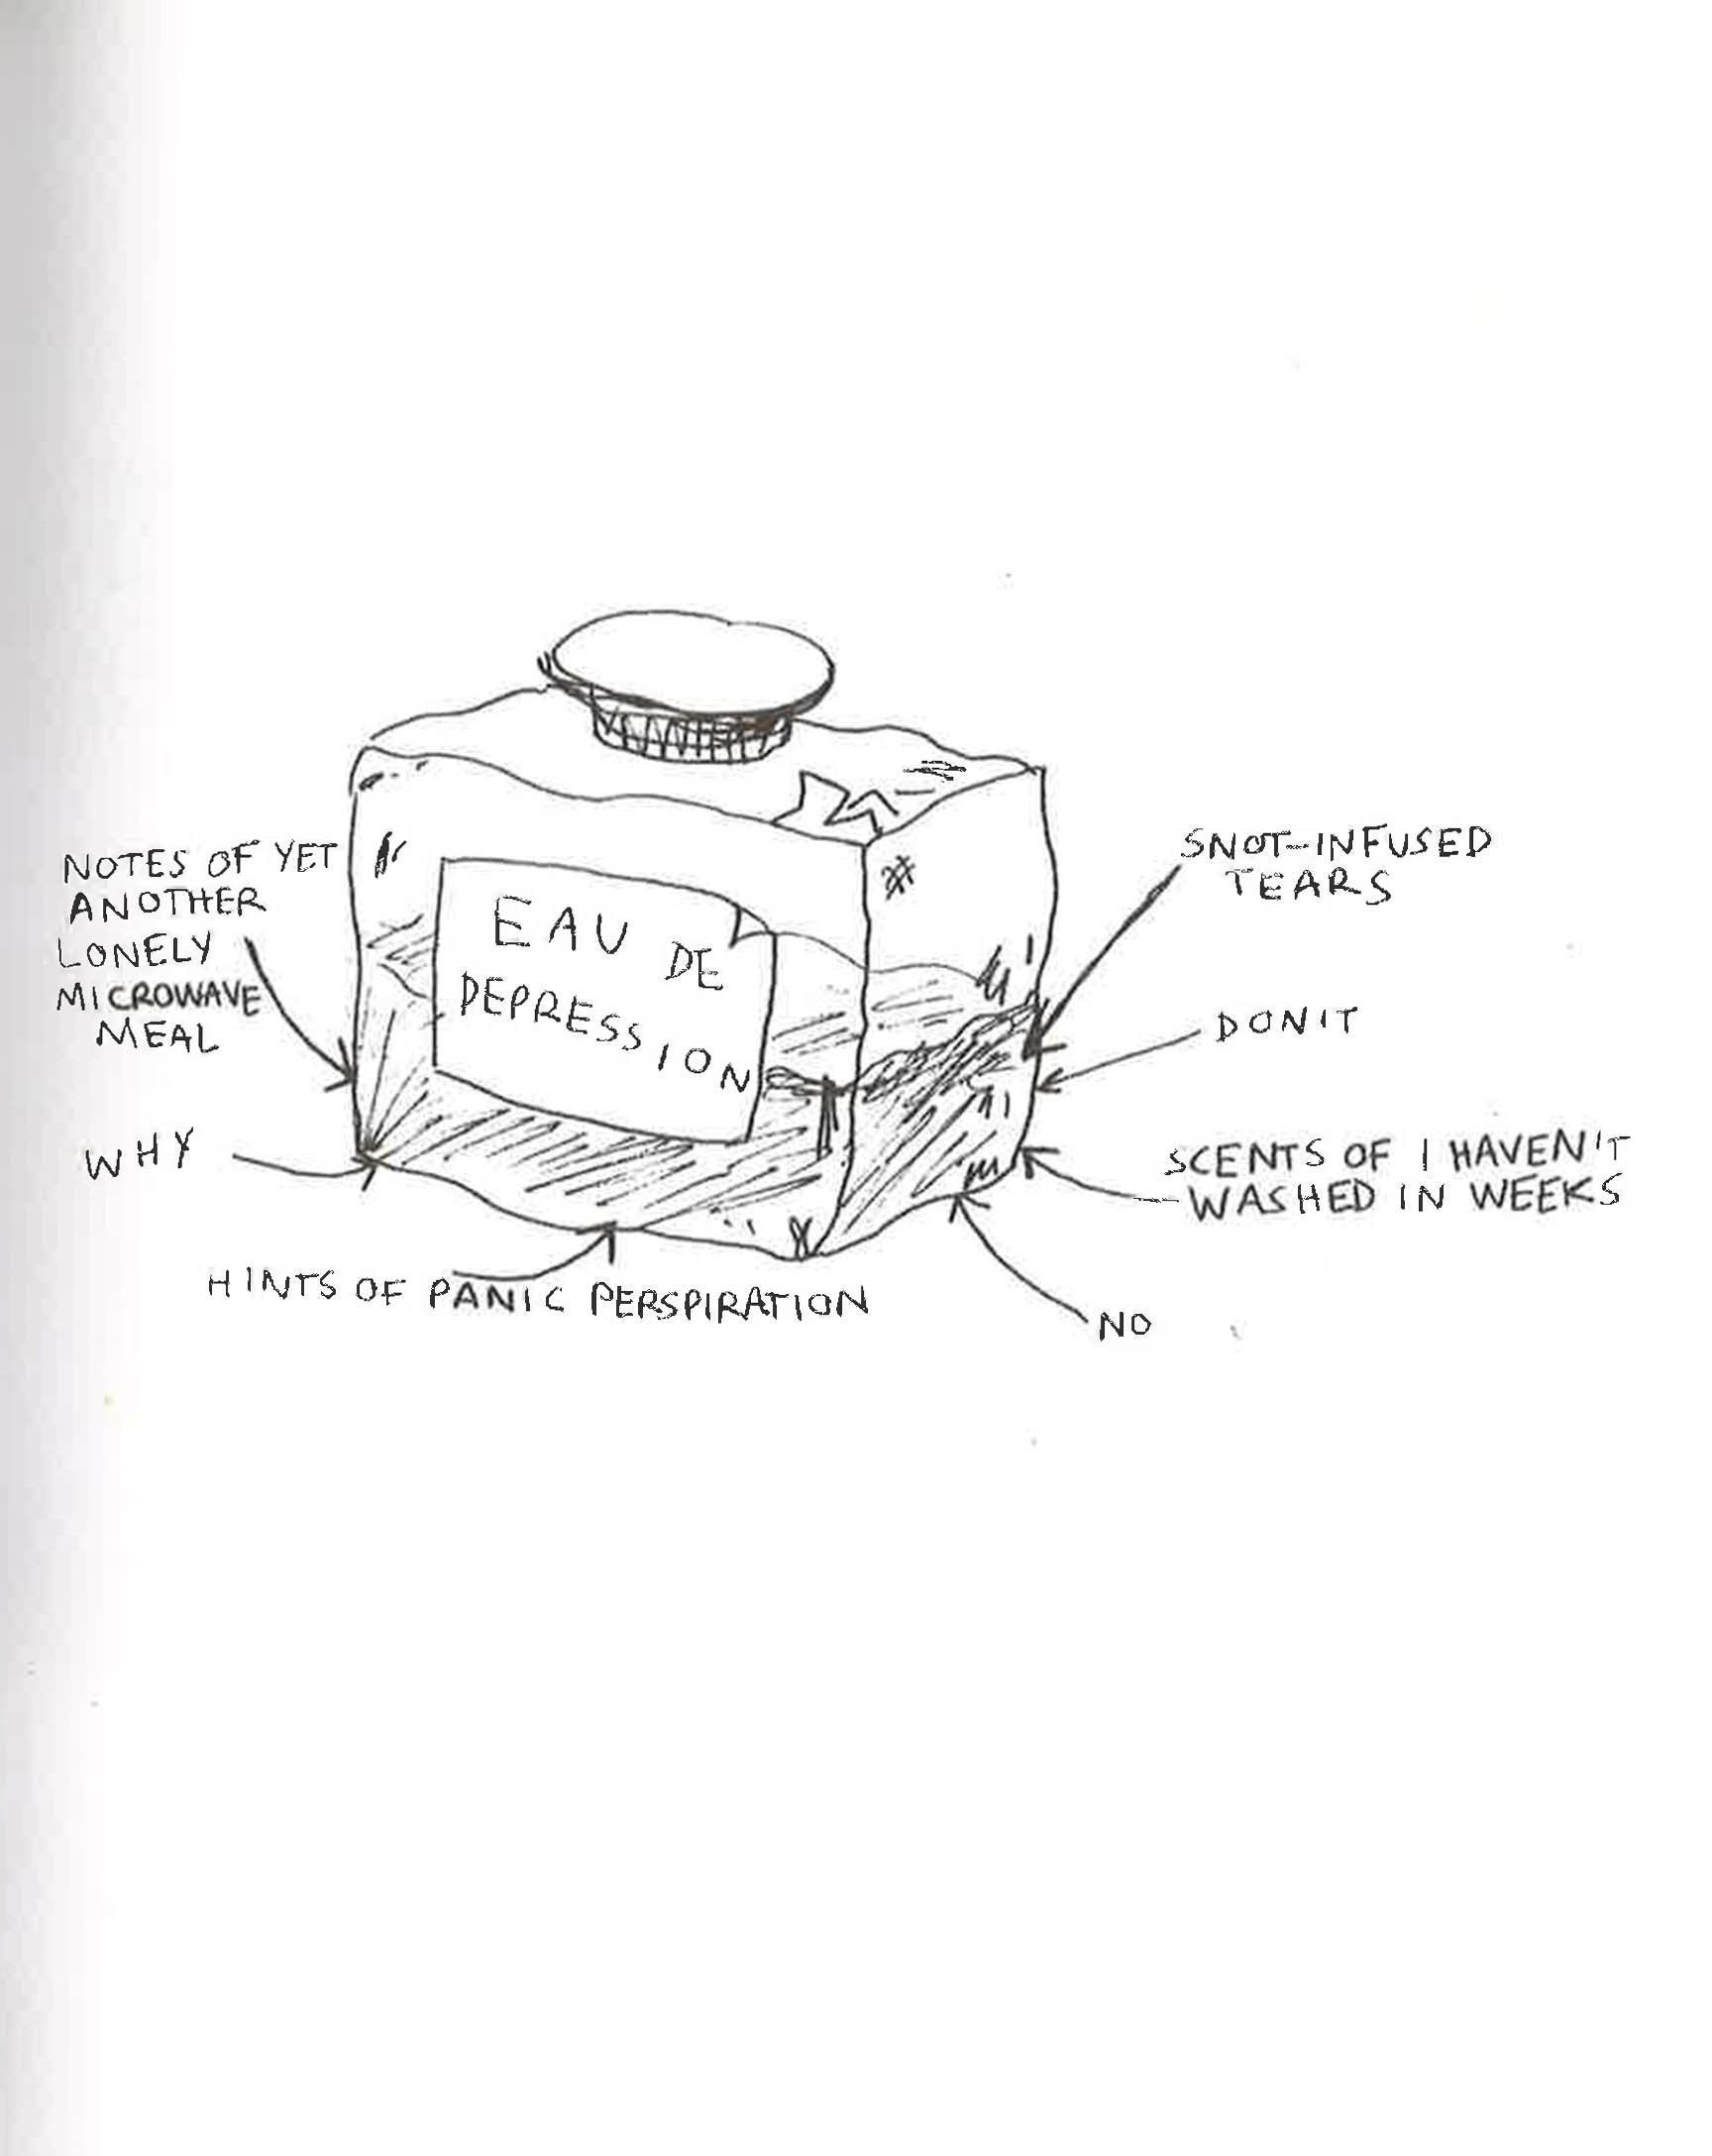 NOTES OF YET
ANOTHER
LONELY
MICROWAVE
MEAL
WHY
HINTS OF PANIC PERSPIRATION
EAU DE
DEPRESSION
SNOT-INFUSED
TEARS
DON'T
SCENTS OF I HAVEN'T
WASHED IN WEEKS
NO